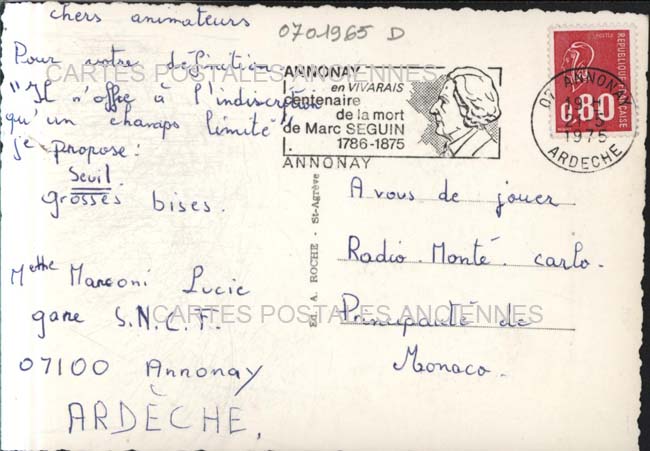 chers animateurs
Pour votre définition
"Il n'offre à l'indiscrétion
qu'un champs limité"
je propose:
Seuil.
grosses bises.
Mette Marconi Lucie
gare S.N.C.F.
07100 Annonay
ARDÈCHE.
0701965 D
ANNONAY
en VIVARAIS
centenaire
de la mort
de Marc SEGUIN
1786-1875
ANNONAY
07 ANNONAY
1975
ARDECHE
REPUBLIQUE FRANÇAISE
0,80
Ed. A. ROCHE - St-Agrève
A vous de jouer
Radio-Monté-carlo.
Principauté de
Monaco.
CARTES POSTALES ANCIENNES
CARTES POSTALES ANCIENNES